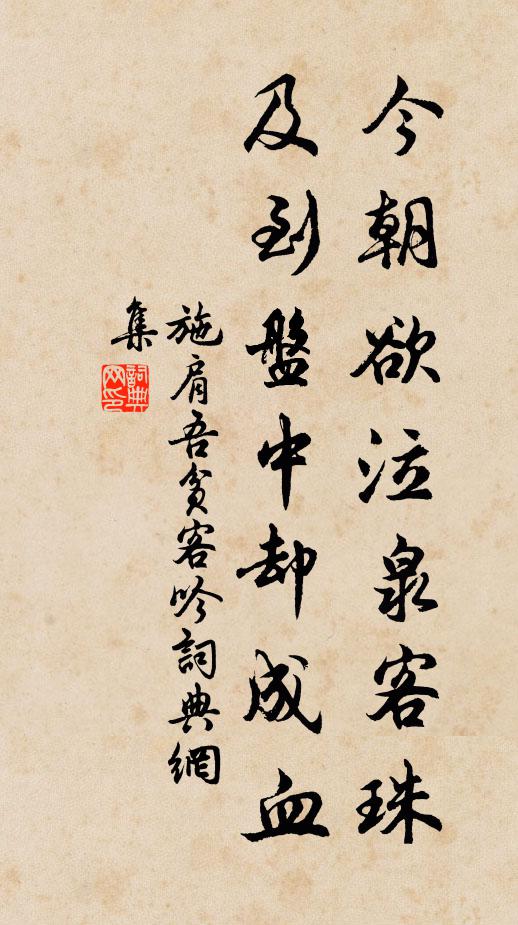 今朝欲泣泉客珠
及到盤中却成血
施肩吾貧客吟詞典網
集
詞典
网印